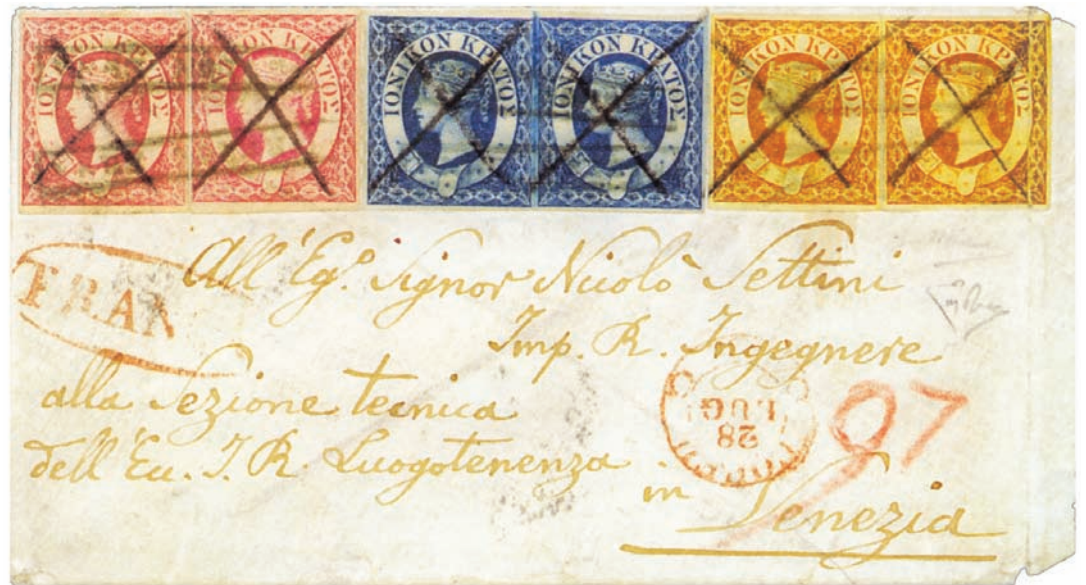 ΙΟΝΙΚΟΝ ΚΡΑΤΟΣ ΙΟΝΙΚΟΝ ΚΡΑΤΟΣ ΙΟΝΙΚΟΝ ΚΡΑΤΟΣ ΙΟΝΙΚΟΝ ΚΡΑΤΟΣ ΙΟΝΙΚΟΝ ΚΡΑΤΟΣ ΙΟΝΙΚΟΝ ΚΡΑΤΟΣ
FRAN
All' Egº. Signor Nicolò Settini
Imp. R. Ingegnere
alla Sezione tecnica
dell' Ecc. I. R. Luogotenenza
in
Venezia
28
LUG
97